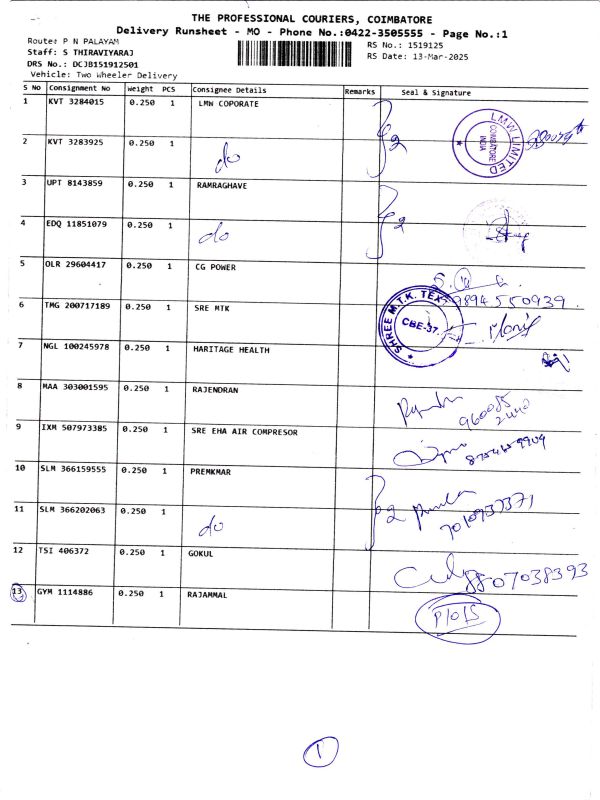 THE PROFESSIONAL COURIERS, COIMBATORE
Delivery Runsheet - MO - Phone No.:0422-3505555 - Page No.:1
Route: P N PALAYAM
RS No.: 1519125
Staff: S THIRAVIYARAJ
RS Date: 13-Mar-2025
DRS No.: DCJB151912501
Vehicle: Two Wheeler Delivery
S No Consignment No Weight PCS Consignee Details Remarks Seal & Signature
1 KVT 3284015 0.250 1 LMW COPORATE 2 LMW LIMITED COIMBATORE INDIA
2 KVT 3283925 0.250 1 do
3 UPT 8143859 0.250 1 RAMRAGHAVE 2
4 EDQ 11851079 0.250 1 do
5 OLR 29604417 0.250 1 CG POWER 9894550939
6 TMG 200717189 0.250 1 SRE MTK SHREE M.T.K. TEXT CBE-37
7 NGL 100245978 0.250 1 HARITAGE HEALTH
8 MAA 303001595 0.250 1 RAJENDRAN
9 IXM 507973385 0.250 1 SRE EHA AIR COMPRESOR
10 SLM 366159555 0.250 1 PREMKMAR 2
11 SLM 366202063 0.250 1 do
12 TSI 406372 0.250 1 GOKUL 8807038393
13 GYM 1114886 0.250 1 RAJAMMAL
1